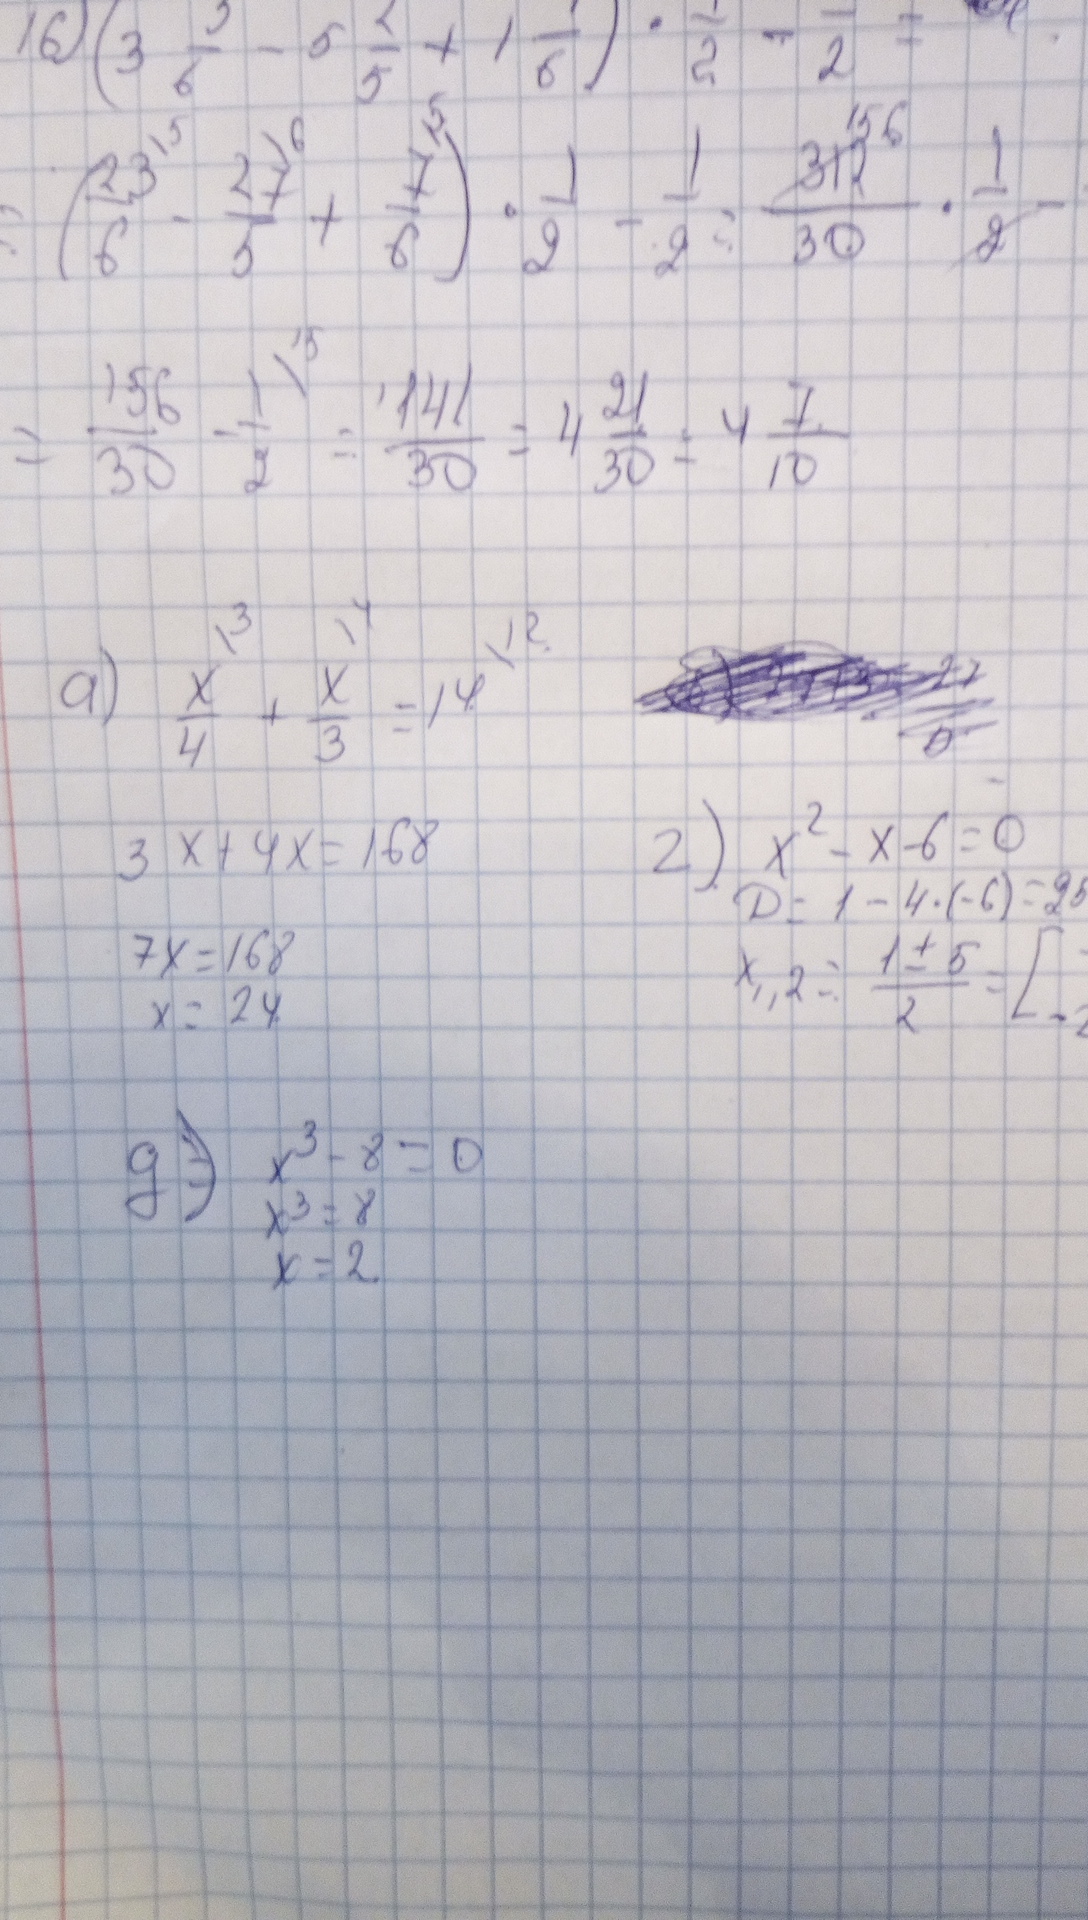 16) (3 5/6 - 5 2/5 + 1 1/6) · 1/2 - 1/2 =
(23/6 \5 - 27/5 \6 + 7/6 \5) · 1/2 - 1/2 = 312/30 156 · 1/2 -
= 156/30 - 1/2 \15 = 141/30 = 4 21/30 = 4 7/10
а) x/4 \3 + x/3 \4 = 14 \12
3x + 4x = 168
7x = 168
x = 24
2) x² - x - 6 = 0
D = 1 - 4·(-6) = 25
x₁,₂ = (1 ± 5)/2 = [ -2
g) x³ - 8 = 0
x³ = 8
x = 2.